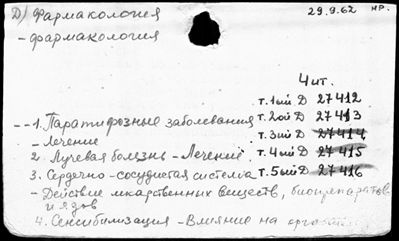 Д) Фармакология 29.9.62 НР.
- фармакология
4 шт.
т. 1ый Д 27412
--1. Паратифозные заболевания т. 2ой Д 27413
- Лечение т. 3ий Д 27414
2. Лучевая болезнь - Лечение. т. 4ый Д 27415
3. Сердечно-сосудистая система т. 5ый Д 27416
- Действие лекарственных веществ, биопрепаратов
и ядов
4. Сенсибилизация - Влияние на